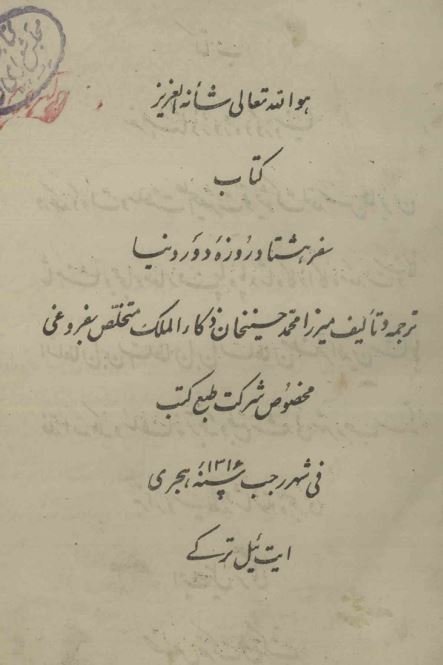 هو الله تعالى شأنه العزیز
کتاب
سفر هشتاد روزهٔ دور دنیا
ترجمه و تألیف میرزا محمد حسینخان ذکاء الملک متخلّص بفروغی
مخصوص شرکت طبع کتب
فی شهر رجب سنهٔ ۱۳۱۶ هجری
ایت ئیل ترکے